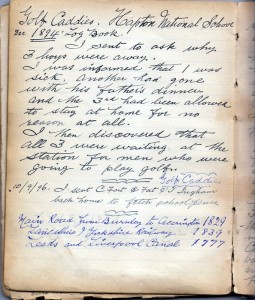 Golf Caddies. Hapton National School
Dec 1894 Log Book.
I sent to ask why
3 boys were away.
I was informed that 1 was
sick, Another had gone
with his father's dinner
and the 3rd had been allowed
to stay at home for no
reason at all.
I then discovered that
all 3 were waiting at the
station for men who were
going to play golf.
Golf Caddies
10/9/96. I sent C Fort & Pat & J Ingham
back home to fetch school pence
Main Road from Burnley to Accrington 1829
Lancashire & Yorkshire Railway 1839
Leeds and Liverpool Canal 1777